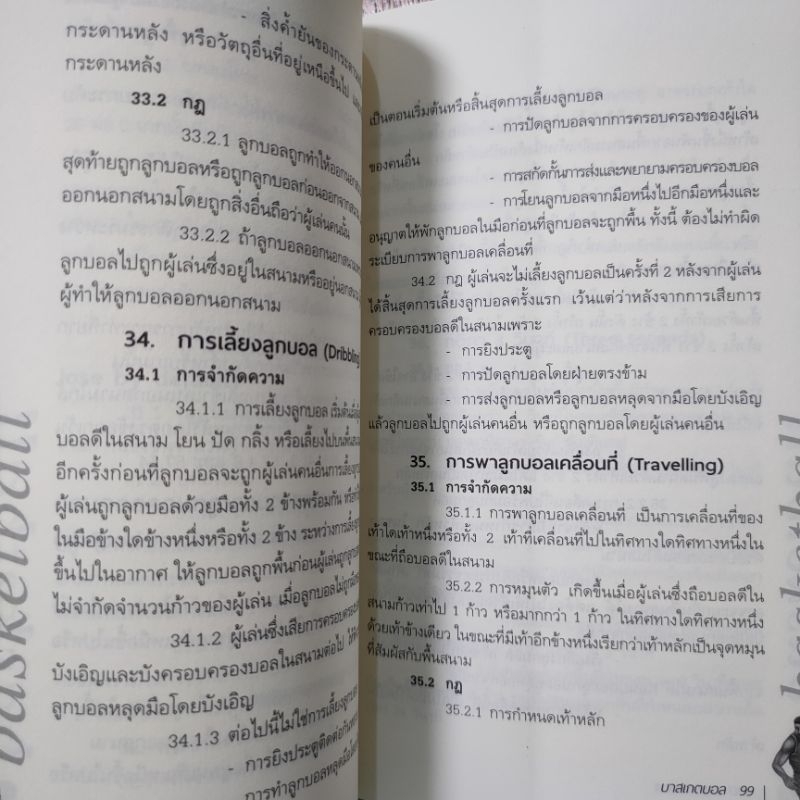 - สิ่งค้ำยันของกระดาน
กระดานหลัง หรือวัตถุอื่นที่อยู่เหนือขึ้นไป
กระดานหลัง
33.2 กฎ
33.2.1 ลูกบอลถูกทำให้ออกนอก
สุดท้ายถูกลูกบอลหรือถูกลูกบอลก่อนออกจาก
ออกนอกสนามโดยถูกสิ่งอื่นถือว่าผู้เล่นคนนั้น
33.2.2 ถ้าลูกบอลออกนอกสนาม
ลูกบอลไปถูกผู้เล่นซึ่งอยู่ในสนามหรืออยู่นอกสนาม
ผู้ทำให้ลูกบอลออกนอกสนาม
34. การเลี้ยงลูกบอล (Dribbling
34.1 การจำกัดความ
34.1.1 การเลี้ยงลูกบอล เริ่มต้น
บอลดีในสนาม โยน ปัด กลิ้ง หรือเลี้ยงไปบนพื้น
อีกครั้งก่อนที่ลูกบอลจะถูกผู้เล่นคนอื่นการเลี้ยง
ผู้เล่นถูกลูกบอลด้วยมือทั้ง 2 ข้างพร้อมกัน
ในมือข้างใดข้างหนึ่งหรือทั้ง 2 ข้าง ระหว่างการเลี้ยง
ขึ้นไปในอากาศ ให้ลูกบอลถูกพื้นก่อนผู้เล่นถูก
ไม่จำกัดจำนวนก้าวของผู้เล่น เมื่อลูกบอลไม่ถูก
34.1.2 ผู้เล่นซึ่งเสียการครอบครอง
บังเอิญและบังครอบครองบอลในสนามต่อไป
ลูกบอลหลุดมือโดยบังเอิญ
34.1.3 ต่อไปนี้ไม่ใช่การเลี้ยงลูกบอล
- การยิงประตูติดต่อกัน
- การทำลูกบอลหลุดมือ
เป็นตอนเริ่มต้นหรือสิ้นสุดการเลี้ยงลูกบอล
- การปัดลูกบอลจากการครอบครองของผู้เล่น
ของคนอื่น
- การสกัดกั้นการส่งและพยายามครอบครองบอล
- การโยนลูกบอลจากมือหนึ่งไปอีกมือหนึ่งและ
อนุญาตให้พักลูกบอลในมือก่อนที่ลูกบอลจะถูกพื้น ทั้งนี้ ต้องไม่ทำผิด
ระเบียบการพาลูกบอลเคลื่อนที่
34.2 กฎ ผู้เล่นจะไม่เลี้ยงลูกบอลเป็นครั้งที่ 2 หลังจากผู้เล่น
ได้สิ้นสุดการเลี้ยงลูกบอลครั้งแรก เว้นแต่ว่าหลังจากการเสียการ
ครอบครองบอลดีในสนามเพราะ
- การยิงประตู
- การปัดลูกบอลโดยฝ่ายตรงข้าม
- การส่งลูกบอลหรือลูกบอลหลุดจากมือโดยบังเอิญ
แล้วลูกบอลไปถูกผู้เล่นคนอื่น หรือถูกลูกบอลโดยผู้เล่นคนอื่น
35. การพาลูกบอลเคลื่อนที่ (Travelling)
35.1 การจำกัดความ
35.1.1 การพาลูกบอลเคลื่อนที่ เป็นการเคลื่อนที่ของ
เท้าใดเท้าหนึ่งหรือทั้ง 2 เท้าที่เคลื่อนที่ไปในทิศทางใดทิศทางหนึ่งใน
ขณะที่ถือบอลดีในสนาม
35.2.2 การหมุนตัว เกิดขึ้นเมื่อผู้เล่นซึ่งถือบอลดีใน
สนามก้าวเท้าไป 1 ก้าว หรือมากกว่า 1 ก้าว ในทิศทางใดทิศทางหนึ่ง
ด้วยเท้าข้างเดียว ในขณะที่มีเท้าอีกข้างหนึ่งเรียกว่าเท้าหลักเป็นจุดหมุน
ที่สัมผัสกับพื้นสนาม
35.2 กฎ
35.2.1 การกำหนดเท้าหลัก
บาสเกตบอล 99
basketball
basketball